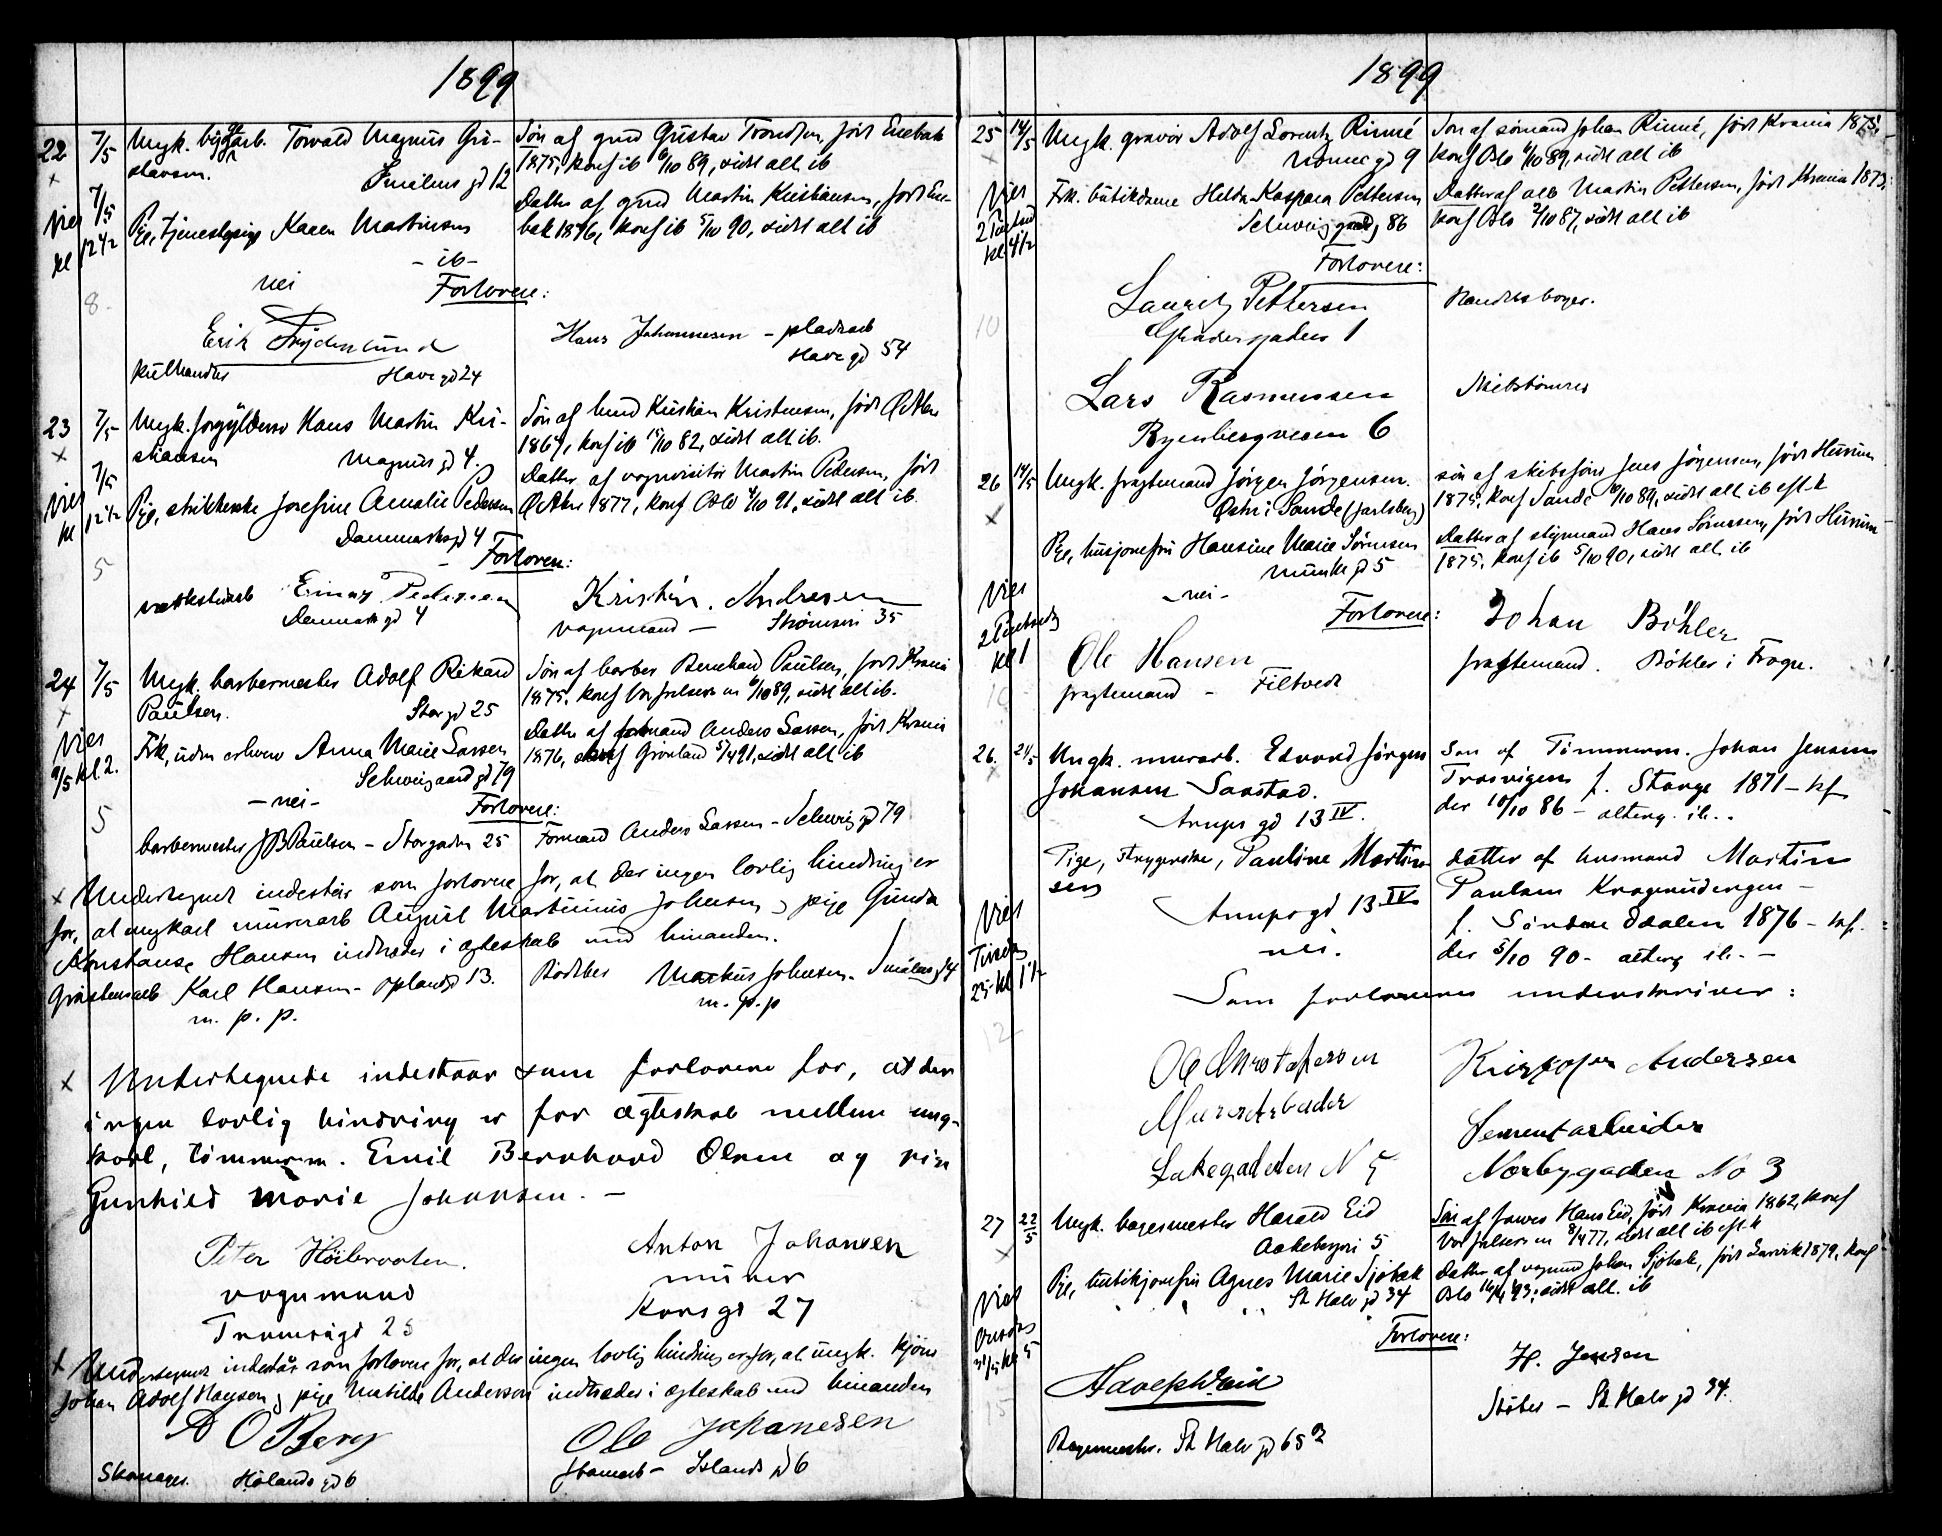 1899
22 7/5 Ungk. byggarb. Torvald Magnus Gu-
stavsen. Smålens gd 12
Søn af gmd Gustav Trondsen, født Enebak
1875, konf ib 6/10 89, sidst alt. ib
Vies 7/5 kl 12 1/2
Pige, tjenestepige Karen Martinsen
- ib -
Datter af gmd Martin Kristiansen, født Ene-
bak 1876, konf ib 5/10 90, sidst alt ib
nei Forlovere:
8.
Erik Frydenlund
kulhandler Havegd 24
Hans Johannesen - pladsarb
Have gd 54
23 7/5 Ungk. forgylder Hans Martin Kri-
stiansen Magnus gd 4.
Søn af Kristian Kristensen, født Ø Aker
1867, konf ib 15/10 82, sidst alt ib.
Vies 7/5 kl 12 1/2
Pige, strikkerske Josefine Amalie Pedersen
Danmarks gd 4
Datter af vognvisitør Martin Pedersen, født
Ø Aker 1877, konf Oslo 4/10 91, sidst alt ib.
- Forlovere:
5
verkstedarb Einar Pedersen
Danmarks gd 4
Kristin. Andresen
vognmand - Strømsvn 35
24 7/5 Ungk. barbermester Adolf Rikard
Paulsen. Stor gd 25
Søn af barber Bernhard Paulsen, født Krania
1875, konf Vor frelsers m 6/10 89, sidst alt ib.
Vies 9/5 kl 2.
Frk, uden erhverv Anna Marie Larsen
Schweigaard gd 79
Datter af formand Anders Larsen, født Krania
1876, konf Grønland 5/4 91, sidst alt ib
- nei - Forlovere:
5
barbermester JB Paulsen - Storgaden 25
Formand Anders Larsen - Schweig gd 79
x Undertegnet indestår som forlovere for, at der ingen lovlig hindring er
for, at ungkarl murerarb August Martinius Johnsen og pige Gunda
Konstanse Hansen indtræder i ægteskab med hinanden.
Gråstensarb Karl Hansen - Opland gd 13.
m. p. p.
Bødker Markus Johnsen. Smålens gd 4
m. p. p
x Undertegnede indestaar som forlovere for, at der
ingen lovlig hindring er for ægteskab mellem ung-
karl, tømmerm. Emil Bernhard Olsen og pige
Gunhild Marie Johansen. -
Peter Høibraaten.
vognmand
Tromsøgd 25
Anton Johansen
murer
Korsgd 27
x Undertegnet indestår som forlovere for, at der ingen lovlig hindring er for, at ungk. kjøre
Johan Adolf Hansen og pige Matilde Andersen indtræder i ægteskab med hinanden
A O Berg
Skomager. Hølands gd 6
Ole Johanesen
Stenarb - Islands gd 6
1899
25 14/5 Ungk. gravør Adolf Lorentz Rinné
Norme gd 9
Søn af sømand Johan Rinné, født Krania 1875,
konf Oslo 6/10 89, sidst alt ib
Vies 2 Pintsed kl 4 1/2
Frk. butikdame Helda Kaspara Pettersen
Schweig gaards gd 86
Datter af arb Martin Pettersen, født Krania 1873,
konf Oslo 2/10 87, sidst alt ib
Forlovere:
10
Lauritz Pettersen
Grindergaden 1
Handelsborger.
Lars Rasmussen
Ryenbergveien 6
Skibstømrer
26 14/5 Ungk. fragtemand Jørgen Jørgensen.
Østn i Sande (Jarlsberg)
søn af skibsfører Jens Jørgensen, født Hurum
1875, konf Sande 6/10 89, sidst alt ib eft-k
Pige, husjomfru Hansine Marie Sørensen
Munke gd 5
Datter af styrmand Hans Sørensen, født Hurum
1875, konf ib 5/10 90, sidst alt ib
Vies 2 Pintsed kl 1
- nei - Forlovere:
10
Ole Hansen
fragtemand - Filtvedt
Johan Böhler
fragtemand. Bøhler i Frogn.
26. 21/5 Ungk. murarb. Edvard Jørgen
Johansen Saastad.
Arups gd 13 IV.
Søn af Tømmerm. Johan Jensen
Trosvigen f. Stange 1871 - kf
der 10/10 86 - alterg. ib. -
Pige, strygerske, Pauline Martin
sen
Arups gd 13 IV
Datter af husmand Martin
Paulsen Kragerudengen -
f. Søndre Odalen 1876 - kf.
der 5/10 90 - alterg ib. -
Vies Tirsdag 23 - kl 1 1/2
nei.
Som forlovere underskriver:
12
Ole Kristofersen
Murerarbeider
Lakegaden N 5
Kristofer Andersen
Sementarbeider
Norbygaden No 3
27 22/5 Ungk. bagermester Harald Eid
Aakebergvi 5
Søn af Hans Eid, født Krania 1862, konf
Vor frelsers m 8/4 77, sidst alt ib eft-k
Pige, butikjomfru Agnes Marie Sjøbak
St Halv gd 34
Datter af vognmd Johan Sjøbak, født Larvik 1879, konf
Oslo 93, sidst alt. ib
Vies Onsdag 31/5 kl 5
Forlovere:
15
Adolph Eid
Bagermester. St Halv gd 65 2
H. Jensen
Støber - St Halv gd 34.